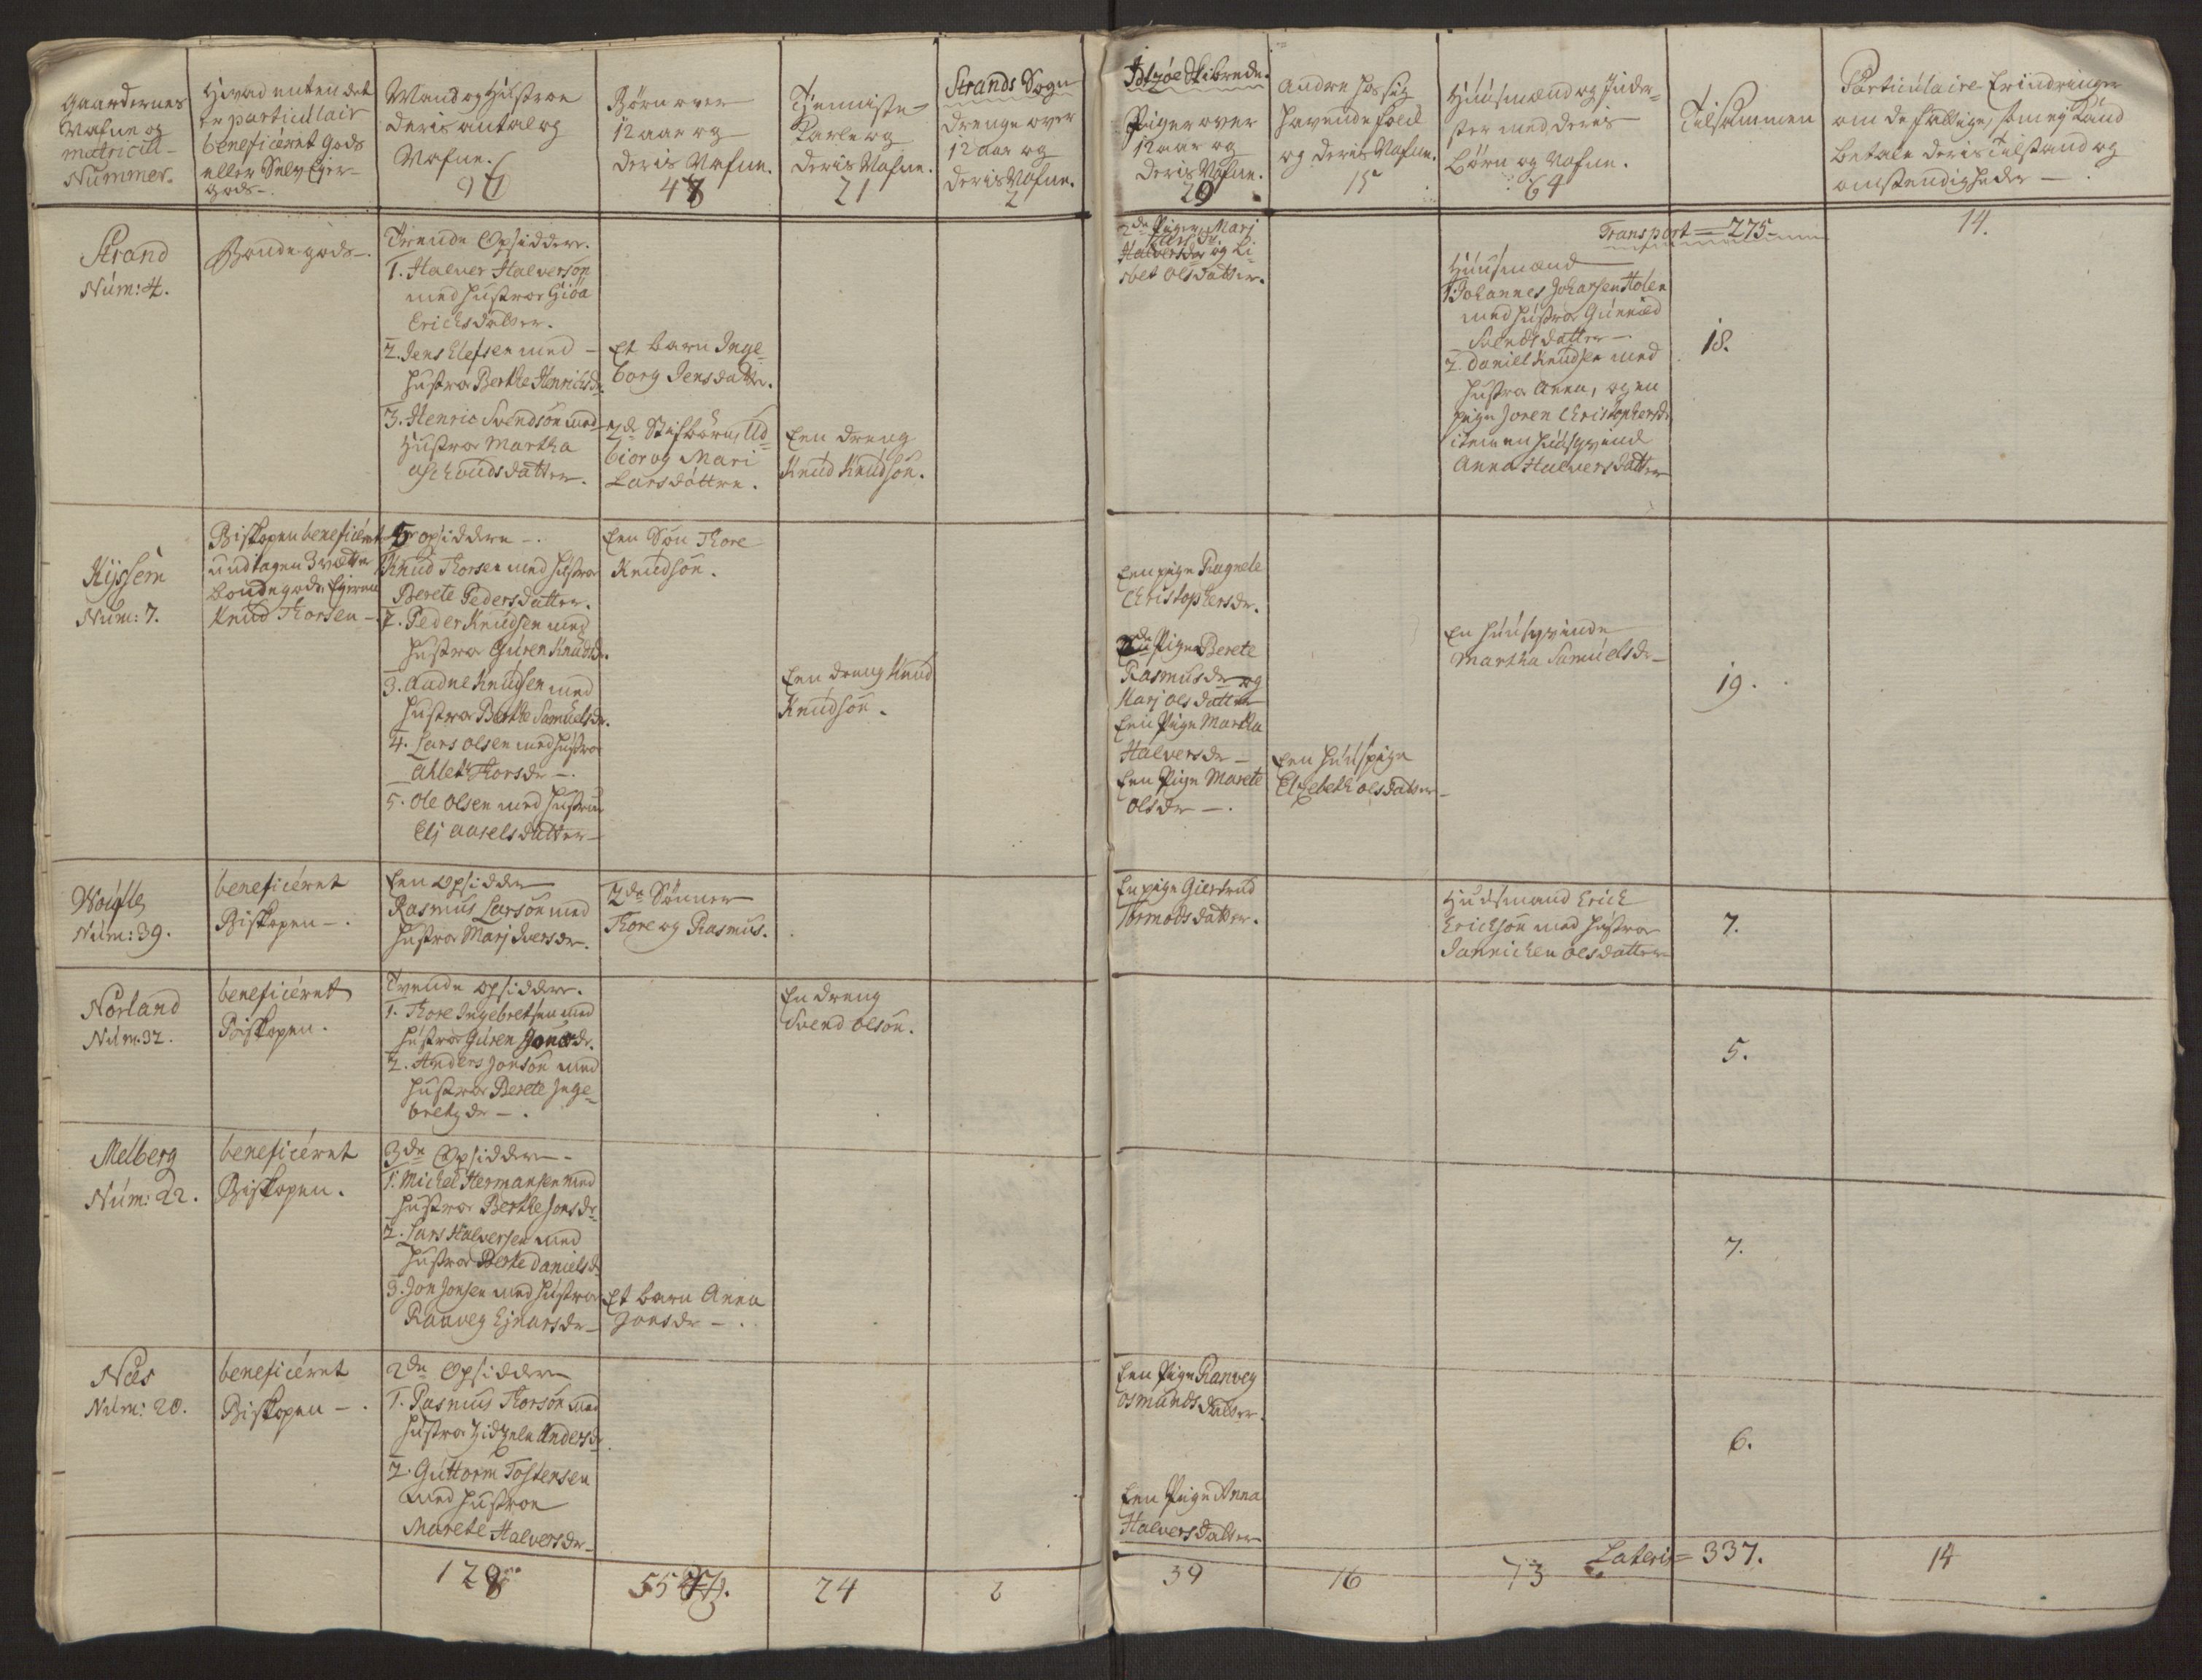 Gaardernes
Nafne og
matricul-
Nummer.
Hvad enten det
er particulair
beneficeret gods
eller Selv Ejer-
gods-.
Mand og Hustroe
deris antal og
Nafne.
Børn over
12 aar og
deris Nafne.
48
Tienniste-
Karle og
deris Nafne.
21
Strands Sogn
drenge over
12 aar og
deris Nafne.
2
Idtzøe Skibrede.
Piger over
12 aar og
deris Nafne.
29
andre hos sig
havende folck
og deris Nafne.
15
Huusmænd og Inder-
ster med deris
Børn og Nafne.
64
Tilsammen
Particulaire Erindringer
om de fattige, som ej kand
betale deris tilstand og
omstendigheder -.
Transport = 275-
14.
Strand
Num: 4.
Bondegods-.
Trende Opsiddere.
1. Halver Halverson
med hustroe Giøa
Erichsdatter.
2. Jens Elefsen med -
hustroe Berthe Henrichsdr.
3. Henric Svendsøn med
Hustroe Martha
Aschoudsdatter.
Et barn Inge-
borg Jensdattr.
2de Stifbørn, Ud-
bior og Mari
Larsdøttre.
Een dreng
Knud Knudsøn.
2de Piger, Marj
Halversdr og Li-
sbet Olsdatter.
Huusmænd
1. Johannes Johansen Holen
med hustroe Gunnild
Svendsdatter-
2. Daniel Knudsen med
hustroe Anna, og en
pige Joren Christophersdr
item en huuskvind
Anna Halversdatter
18.
Kyssem
Num: 7.
Biskopen beneficeret
undtagen 3 vetter
bondegods Ejeren
Knud Thorsen -.
5 opsiddere -.
Knud Thorsen med hustroe
Berete Pedersdatter.
2. Peder Knudsen med
hustroe Guren Knudsdr.
3. Aadne Knudsen med
hustroe Berthe Samuelsdr.
4. Lars Olsen med hustroe
Ahlet Thorsdr -.
5. Ole Olsen med hustroe
Elj Axelsdatter-
Een Søn Thore
Knudsøn.
Een dreng Knud
Knudsøn.
Een pige Ragnele
Christophersdr.
2de Piger Berete
Rasmusdr og
Marj Olsdatter
Een Pige Martha
Halversdr -
Een Pige Marete
Olsdr -.
Een huuspige
Elsebeth Olsdatter-
En huuskvinde
Martha Samuelsdr-
19.
Num: 39.
beneficeret
Biskopen -.
Een Opsidder
Rasmus Larsøn med
hustroe Marj Iversdr.
2de Sønner
Thore og Rasmus.
En pige Giertrud
Tormodsdatter.
Huusmand Erich
Erichsøn med hustroe
Jannichen Olsdatter
7.
Nørland
Num: 32.
beneficeret
Biskopen.
Tvende opsiddere.
1. Thore Ingebretsen med
hustroe Guren Jonsdr.
2. Anders Jonsøn med
hustroe Berete Inge-
bretzdr -.
En dreng
Svend Olsøn.
5.
Melberg
Num: 22.
beneficeret
Biskopen.
3de Opsiddere-.
1. Michel Hermansen med
hustroe Berthe Jonsdr-
2. Lars Halversen med
hustroe Berte Danielsdr
3. Jon Jonsen med hustroe
Ranveg Ejnarsdr-
Et barn Anna
Jonsdr -.
7.
Næs
Num: 20.
beneficeret
Biskopen -.
2de Opsiddere
1. Rasmus Thorsøn med
hustroe Zidzele Andersdr.
2. Guttorm Tostensen
med hustroe
Marete Halversdr-
Een Pige Ranveg
Osmundsdatter.
Een Pige Anna
Halversdatter
6.
128
55
24
2
39
16
73
Lateris = 337.
14